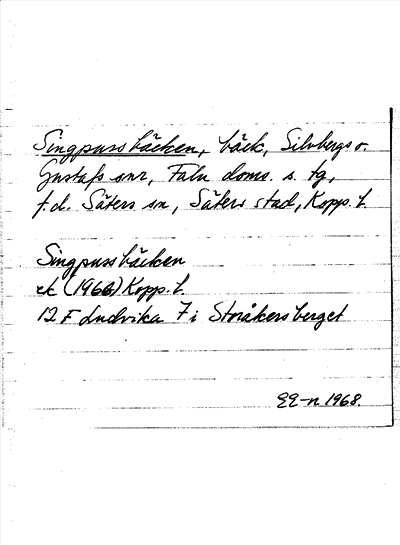 Singpussbäcken, bäck, Silvbergs o.
Gustafs snr, Falu doms. s. tg,
f.d. Säters sn, Säters stad, Kopp. l.
Singpussbäcken
ek (1966) Kopp. l.
12 F Ludvika 7 i Storåkersberget
1968.